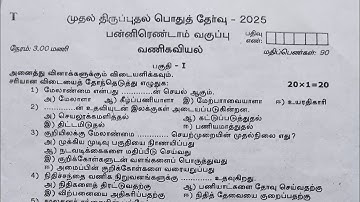 T
முதல் திருப்புதல் பொதுத் தேர்வு - 2025
பன்னிரெண்டாம் வகுப்பு
பதிவு எண்:
நேரம்: 3.00 மணி
வணிகவியல்
மதிப்பெண்கள்: 90
பகுதி - I
அனைத்து வினாக்களுக்கும் விடையளிக்கவும்.
சரியான விடையைத் தேர்ந்தெடுத்து எழுதுக:
20×1=20
1) மேலாண்மை என்பது ........... ன் செயல் ஆகும்.
அ) மேலாளர் ஆ) கீழ்ப்பணியாளர் இ) மேற்பார்வையாளர் ஈ) உயரதிகாரி
2) ........... ன் உதவியுடன் இலக்குகள் அடையப்படுகின்றன.
அ) செயலூக்கமளித்தல் ஆ) கட்டுப்படுத்துதல்
இ) திட்டமிடுதல் ஈ) பணியமர்த்துதல்
3) குறியிலக்கு மேலாண்மை ........... செயற்முறையின் முதல்நிலை எது?
அ) முக்கிய முடிவு பகுதியை நிர்ணயிப்பது
ஆ) நடவடிக்கைகளை மதிப்பீடு செய்வது
இ) குறிக்கோள்களுடன் வளங்களைப் பொருத்துவது
ஈ) அமைப்பின் குறிக்கோள்களை வரையறுப்பது
4) நிதிச்சந்தை வணிக நிறுவனங்களுக்கு ........... உதவுகிறது.
அ) நிதிகளைத் திரட்டுவதற்கு ஆ) பணியாட்களை தேர்வு செய்வதற்கு
இ) விற்பனையை அதிகரிப்பதற்கு ஈ) நிதித் தேவையை குறைப்பதற்கு